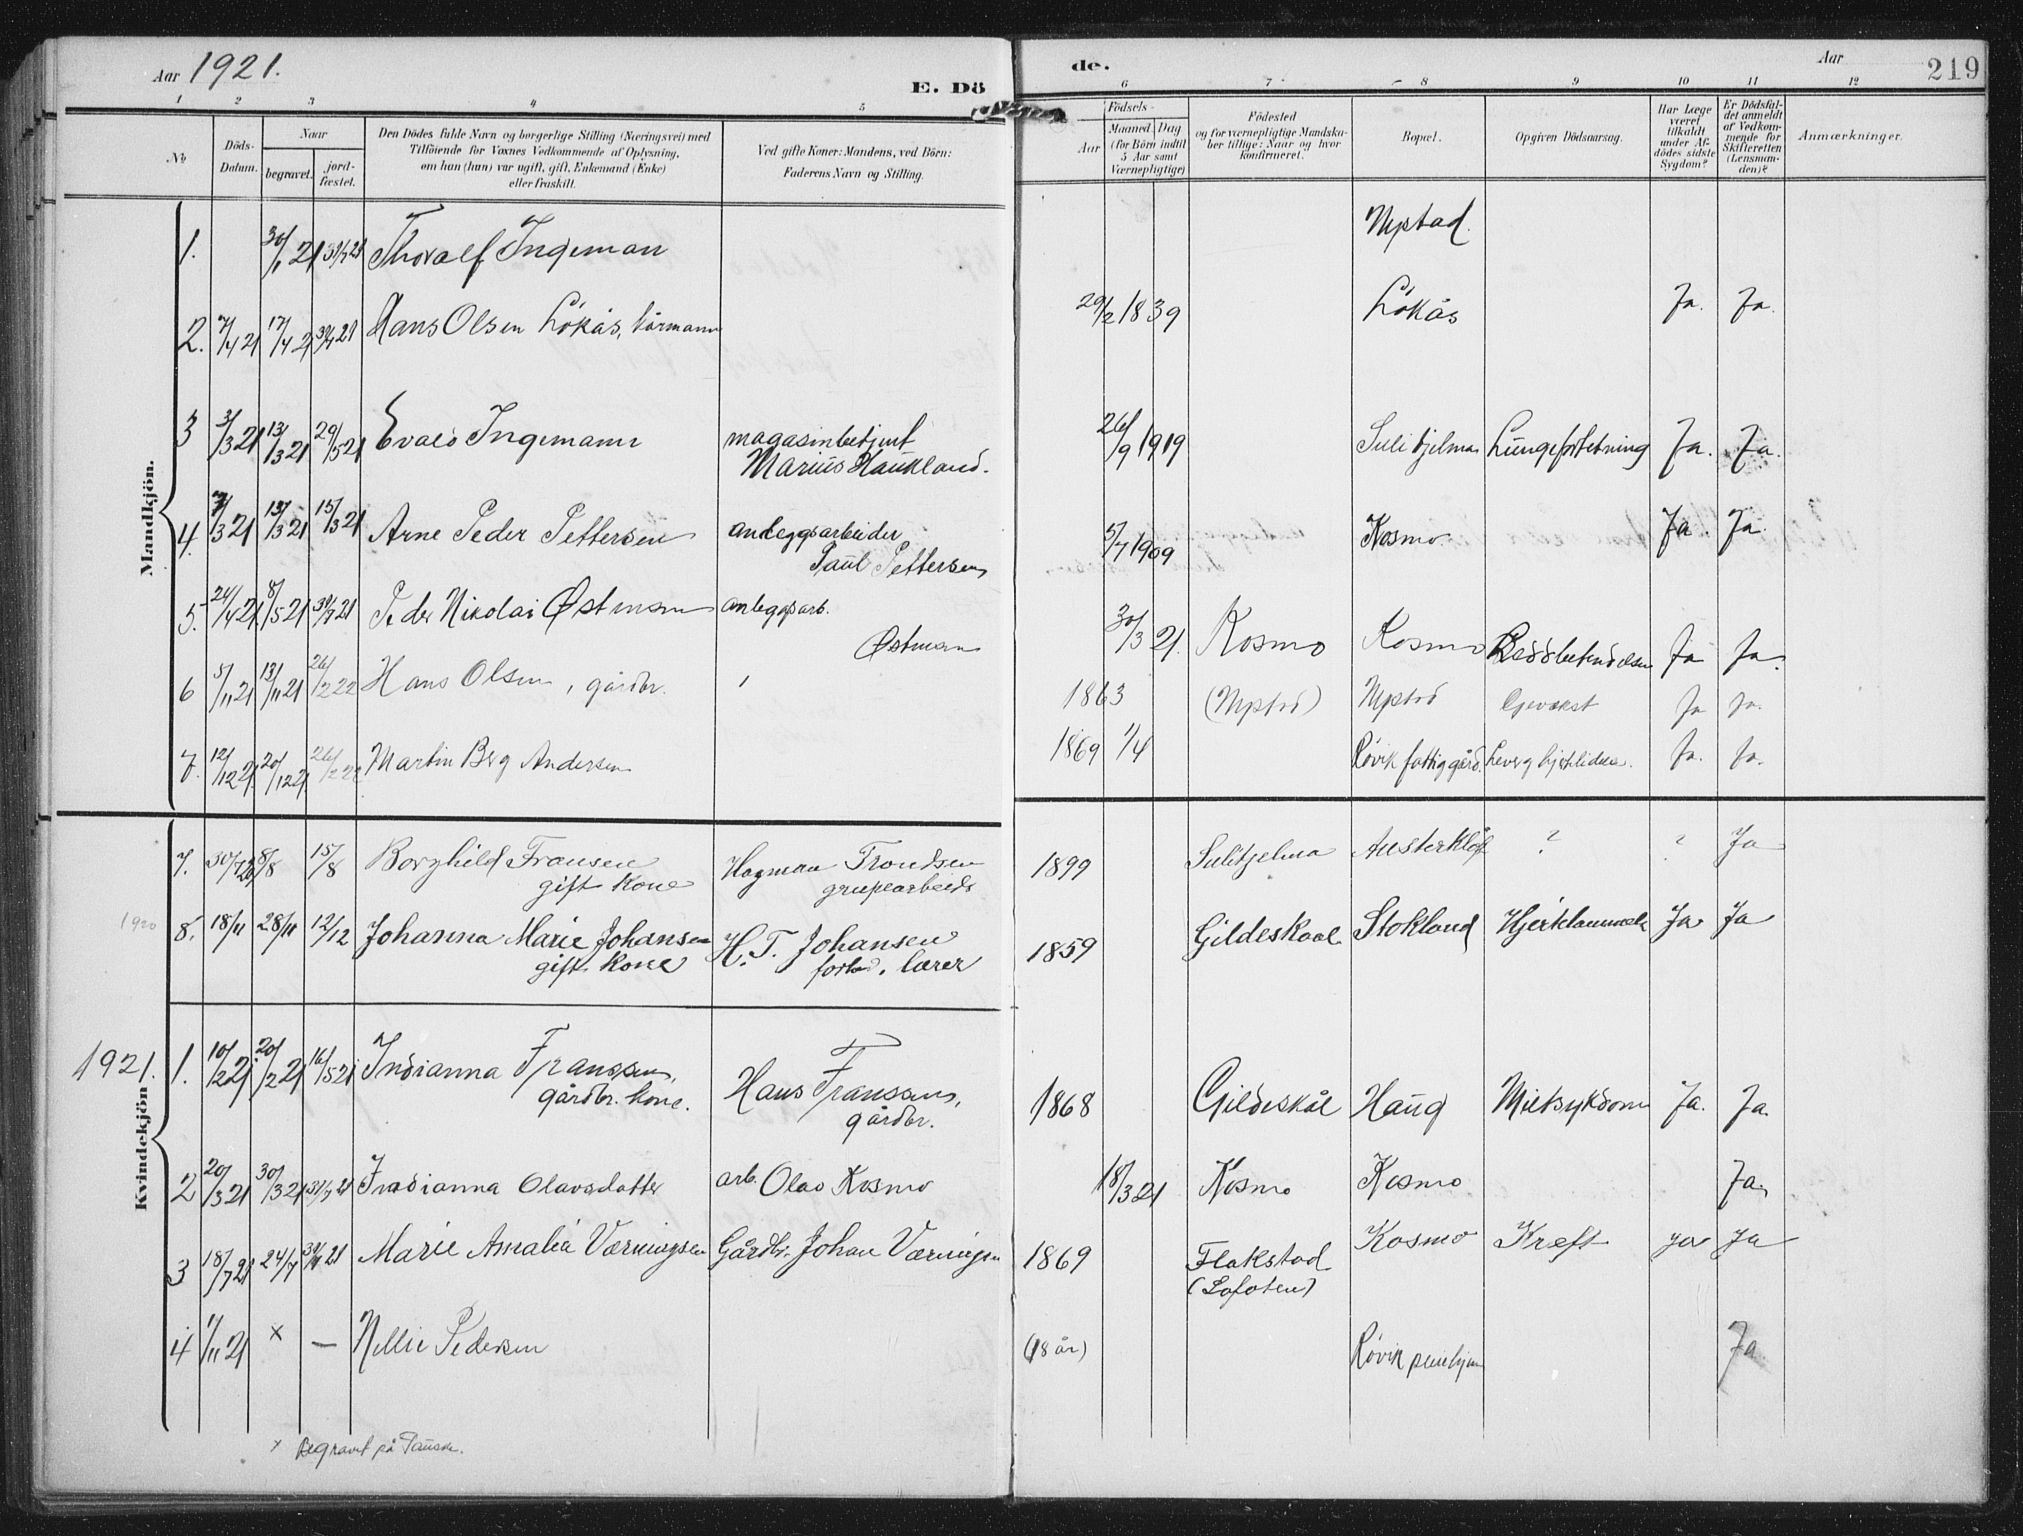 Aar 1921.
E. Dö
de.
Aar
219
1 2 3 4 5
6 7 8 9 10 11 12
No
Döds-
Datum.
Naar
begravet.
jord-
fæstet.
Den Dödes fulde Navn og borgerlige Stilling (Næringsvei) med
Tilföiende for Voxnes Vedkommende af Oplysning,
om han (hun) var ugift, gift, Enkemand (Enke)
eller fraskilt.
Ved gifte Koner: Mandens, ved Börn:
Faderens Navn og Stilling.
Födsels-
Aar
Maaned. Dag
(for Börn indtil
5 Aar samt
Værnepligtige)
Födested
og for værnepligtige Mandska-
ber tillige: Naar og hvor
konfirmeret.
Bopæl.
Opgiven Dödsaarsag.
Har Læge
været
tilkaldt
under Af-
dödes sidste
Sygdom?
Er Dödsfal-
det anmeldt
af Vedkom-
mende for
Skifteretten
(Lensman-
den)?
Anmærkninger.
Mandkjön.
1. 30/1 21 Thoralf Ingeman
2. 7/4 21 17/4 21 Hans Olsen Løkås, kårmann 29/2 1839 Løkås Ja. Ja.
3 3/3 21 13/3 21 29/5 21 Evald Ingemann magasinbetjent
Marius Haukland.
26/9 1919 Sulitjelma Lungebetendning Ja. Ja.
4. 7/3 21 13/3 21 15/3 21 Arne Peder Pettersen anleggsarbeider
Paul Pettersen
5/7 1909 Kosmo. Ja. Ja.
5. 24/4 21. 8/5 21 Peder Nikolai Østman anleggsarb.
Østman
30/3 21. Kosmo Kosmo Ja Ja.
6 5/11 21 13/11 21 26/2 22 Hans Olsen, gårdbr.
1863 Ja Ja.
7. 12/12 21. 20/12 21. 26/2 22 Martin Berg Andersen
1869 1/4 Røvik fattiggård. Ja. Ja.
Kvindekjön
7. 30/7 20 8/8 15/8 Borghild Fransen
gift kone
Hagman Trondsen
grupearbeids
1899 Sulitjelma Austerkløf ? ? Ja
1920
8. 18/11 28/11 12/12 Johanna Marie Johansen
gift kone
H. T. Johansen
forhv. lærer
1859 Gildeskaal Stokland Hjertelammelse Ja Ja
1921.
1. 10/2 21. 20/2 21 16/5 21 Indianna Franssen,
gårdbr. kone.
Hans Franssen,
gårdbr.
1868 Gildeskål Haug Miltsykdom Ja. Ja.
2 20/3 21 30/3 21 Indianna Olavsdatter arb. Olav Kosmo
18/3 21 Kosmo Kosmo Ja.
3 18/7 21 24/7 Marie Amalia Værningsen Gårdbr. Johan Værningsen
1869 Flakstad
(Lofoten)
Kosmo Kreft ja Ja
4 11/11 21 x — Nellie Pedersen
(18 år) Røvik pleiehjem Ja
x Begravet på Fauske.